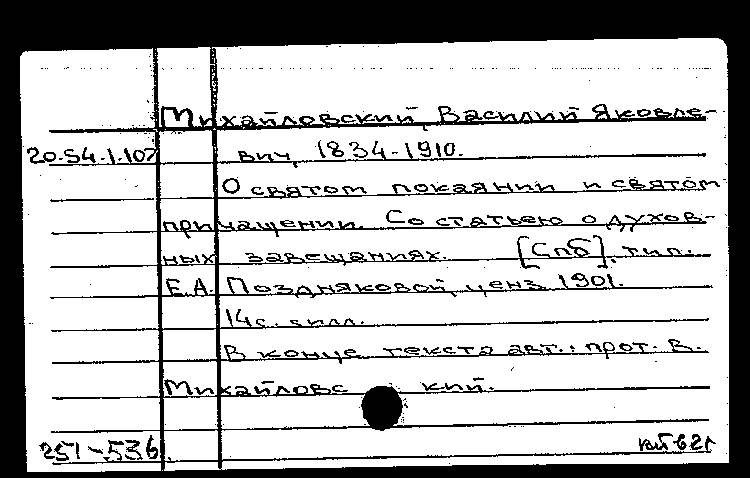 Михайловский, Василий Яковле-
20.54.1.107 вич, 1834-1910.
О святом покаянии и святом
причащении. Со статьею о духов-
ных завещаниях. [Спб], тип.
Е.А. Поздняковой, ценз. 1901.
14 с. с илл.
В конце текста авт.: прот. В.
Михайловский.
251-536.